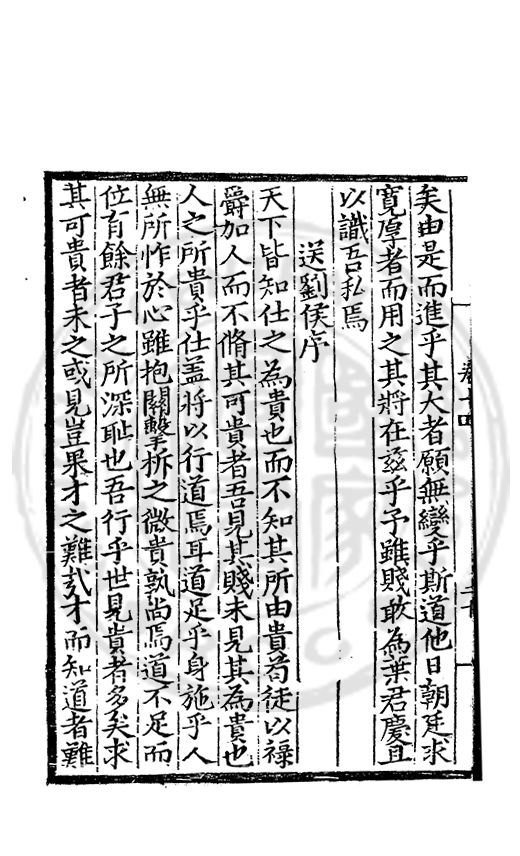 矣由是而進乎其大者願無變乎斯道他日朝廷求
寬厚者而用之其將在茲乎予雖賤敢為葉君慶且
以識吾私焉
送劉侯序
天下皆知仕之為貴也而不知其所由貴苟徒以祿
爵加人而不脩其可貴者吾見其賤未見其為貴也
人之所貴乎仕盖將以行道焉耳道足乎身施乎人
無所怍於心雖抱關擊柝之微貴孰尚焉道不足而
位有餘君子之所深恥也吾行乎世見貴者多矣求
其可貴者未之或見豈果才之難㢤才而知道者難
卷十四